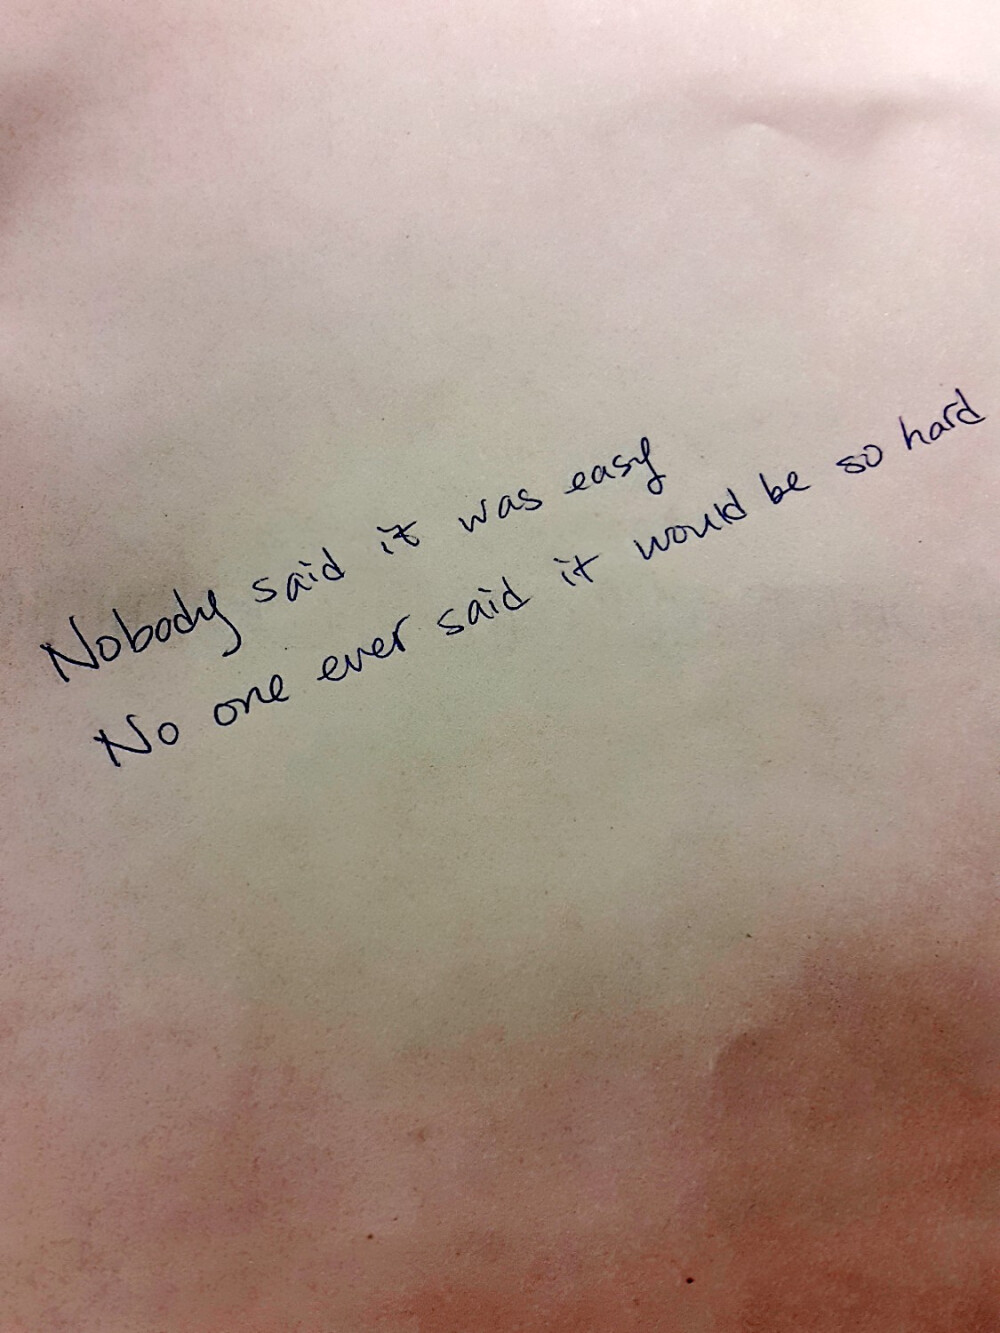 Nobody said it was easy
No one ever said it would be so hard